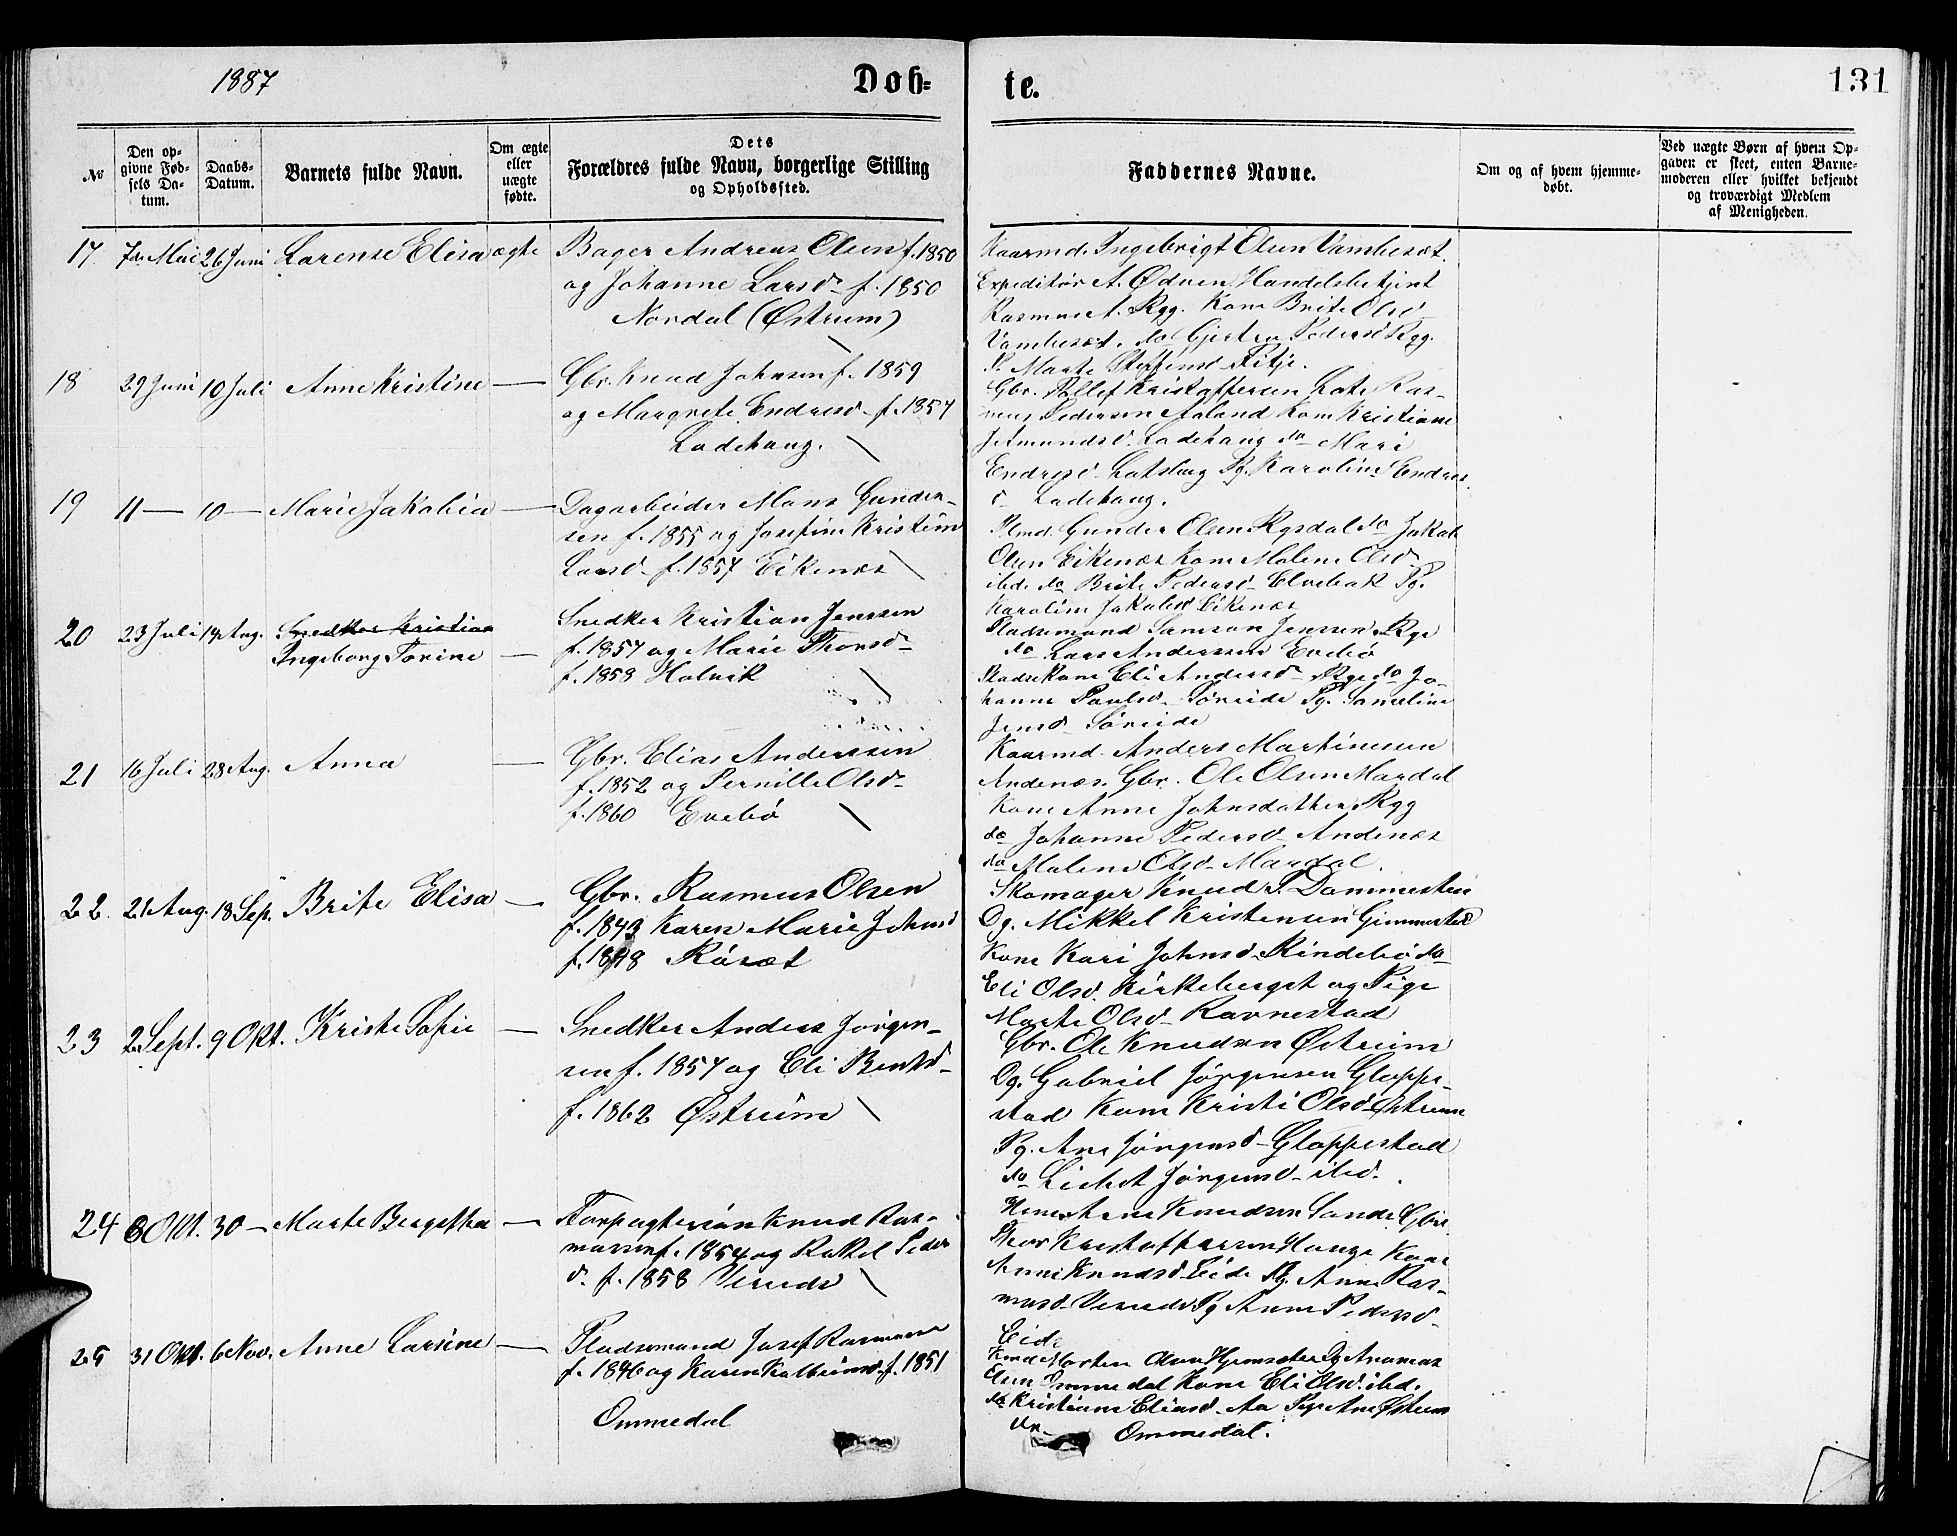 1887
Døb-
te.
131
No
Den op-
givne Fød-
sels Da-
tum.
Daabs-
Datum.
Barnets fulde Navn.
Om ægte
eller
uægte
fødte.
Dets
Forældres fulde Navn, borgerlige Stilling
og Opholdssted.
Faddernes Navne.
Om og af hvem hjemme-
døbt.
Ved uægte Børn af hvem Op-
gaven er skeet, enten Barne-
moderen eller hvilket bekjendt
og troværdigt Medlem
af Menigheden.
17. 7de Mai 26 Juni Larense Elisa ægte
Bager Andreas Olsen f. 1850
og Johanne Larsd. f. 1850
Nordal (Østrum)
Kaarmd. Ingebrigt Olsen Vambeset.
Expeditør A. Ødven, Handelsbetjent
Rasmus A. Ryg. Kone Brite Olsd
Vambeset. do Gjertru Pedersd Ryg.
P. Marte Steffensd Fitje.
18 29 Juni 10 Juli Anne Kristine —
Gbr. Knud Johnsen f. 1859
og Margrete Endresd. f. 1857
Ladehaug.
Gbr. Kristoffersen Lote Ras-
mus Pedersen Aaland Kone Kristiane
Amundsd. Ladehaug do Mari
Endresd. Pg. Karoline Endres
d. Ladehaug.
19 11 — 10 — Marie Jakobia —
Dagarbeider Mons Gunder-
sen f. 1855 og Josefine Kristine
Larsd. f. 1857 Eikenes
Plmd. Gunder Olsen Rysdal do Jakob
Olsen Eikenes Kone Malene Olsd.
ibd. do Brite Pedersd. Elvebak Pg.
Karoline Jakobsd Eikenes
20 23 Juli 14 Aug. Snedker Kristian
Ingeborg Torine —
Snedker Kristian Jenssen
f. 1857 og Marie Thorsd.
f. 1858 Holvik
Pladsemand Samson Jenssen Ryg
do Lars Anderssen Evebø
Pladsekone Eli Andersd. Ryg do Jo-
hanne Paulsd. Søreide Pg. Samseline
Jensd Søreide
21 16 Juli 28 Aug. Anna —
Gbr. Elias Anderssen
f. 1852 og Pernille Olsd.
f. 1860 Evebø
Kaarmd. Anders Martinussen
Andenes. Gbr. Ole Olsen Mardal
Kone Anne Johnsdatter Ryg
do Johanne Pedersd. Andenes
do Malene Olsd. Mardal.
22. 21 Aug. 18 Sep. Brite Elisa —
Gbr. Rasmus Olsen
f. 1843 Karen Marie Johnsd
f. 1848 Røset
Skomager Knud P. Dammesten
Og. Mikkel Kristensen Gimmestad
Kone Kari Johnsd. Rindebø do
Eli Olsd. Kirkeberget og Pige
Marte Olsd. Ravnestad
23 2 Sept. 9 Okt. Kriste Sofie —
Snedker Anders Jørgen-
sen f. 1857 og Eli Bentsd.
f. 1862 Østrum
Gbr. Ole Knudsen Østrum
Og. Gabriel Jørgensen Gloppe-
stad Kone Kristi Olsd. Østrum
Pg. Ane Jørgensd. Gloppestad
do Lisbet Jørgensd. ibid.
24 8 Okt. 30 — Marte Bergitha —
Forpagter Knud Ras-
mussen f. 1854 og Rakel Peder
d. f. 1858 Vereide
Arne Knudsen Sande Gbr.
Thor Kristoffersen Hauge Kone
Anne Knudsd. Eide Pg. Anne Ras-
musd. Vereide Pg Anne Pedersd.
Eide
25 31 Okt. 6 Nov. Anne Larsine —
Pladsemand Josef Rasmussen
f. 1846 og Karen Kolbeinsd. f. 1851
Ommedal
Morten Olsen
Olsen Ommedal Kone Eli Olsd. ibd.
do Kristiane Eliasd. Aa Pige Ane
Ommedal.